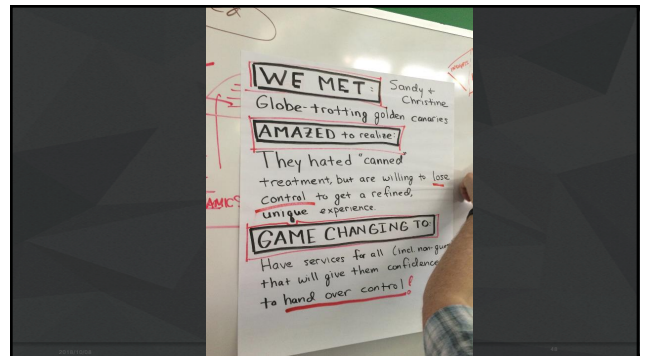 WE MET:
Sandy +
Christine
Globe-trotting golden canaries
AMAZED to realize:
They hated "canned"
treatment, but are willing to lose
control to get a refined,
unique experience.
GAME CHANGING TO:
Have services for all (incl. non-
that will give them confidence
to hand over control!